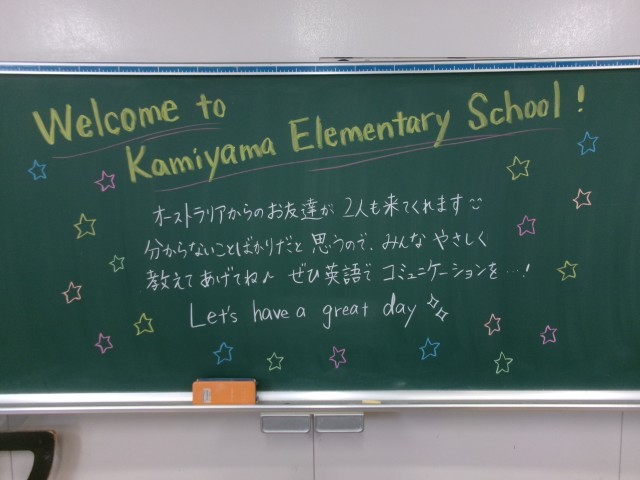 Welcome to
Kamiyama Elementary School!
オーストラリアからのお友達が 2人も来てくれます
分からないことばかりだと思うので、みんなやさしく
教えてあげてね♪ ぜひ英語でコミュニケーションを…!
Let's have a great day